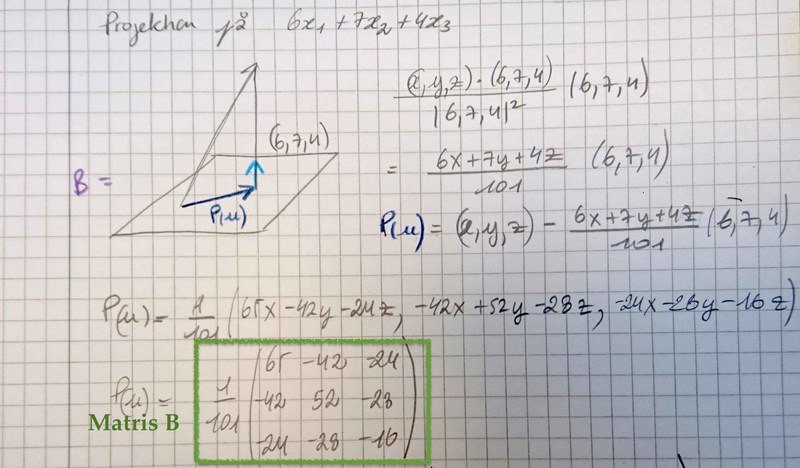 Projektion på 6x₁ + 7x₂ + 4x₃
(x,y,z) · (6,7,4) / |6,7,4|² (6,7,4)
(6,7,4)
B =
= 6x+7y+4z / 101 (6,7,4)
P(u)
P(u) = (x,y,z) − 6x+7y+4z / 101 (6,7,4)
P(u) = 1/101 (65x −42y −24z, −42x +52y −28z, −24x −28y −16z)
P(u) = 1/101 (65 −42 −24
−42 52 −28
−24 −28 −16)
Matris B